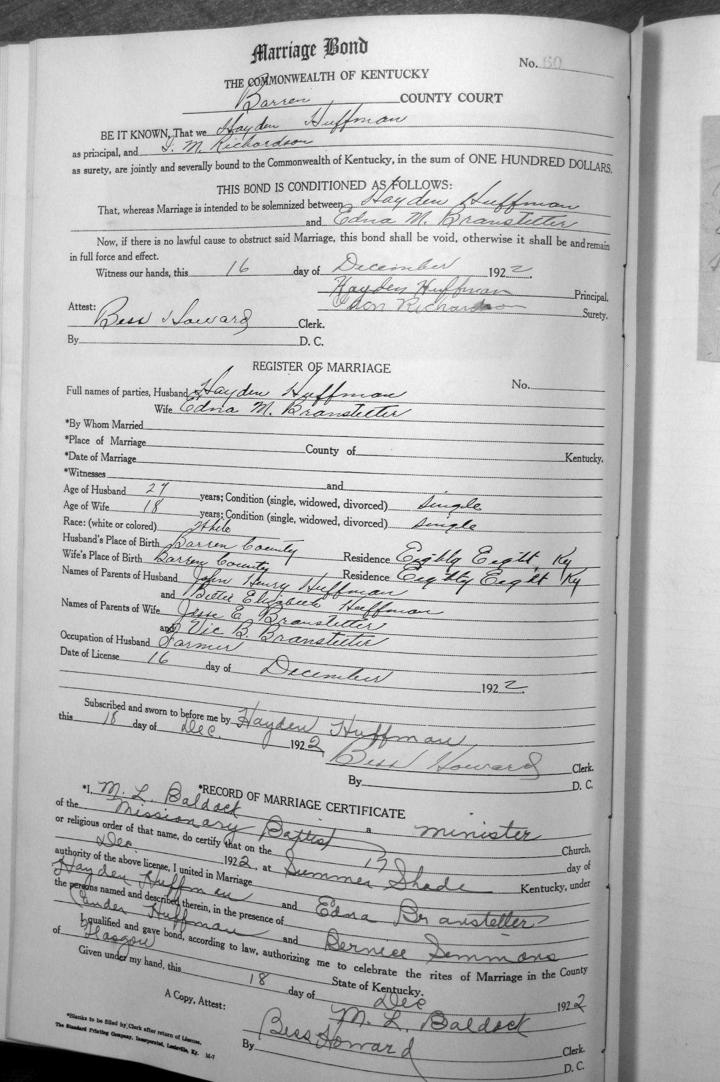 Marriage Bond
No. 60
THE COMMONWEALTH OF KENTUCKY
Barren COUNTY COURT
BE IT KNOWN, That we Hayden Huffman
as principal, and M. Richardson
as surety, are jointly and severally bound to the Commonwealth of Kentucky, in the sum of ONE HUNDRED DOLLARS.
THIS BOND IS CONDITIONED AS FOLLOWS:
That, whereas Marriage is intended to be solemnized between Hayden Huffman
and Edna M. Branstetter
Now, if there is no lawful cause to obstruct said Marriage, this bond shall be void, otherwise it shall be and remain
in full force and effect.
Witness our hands, this 16 day of December 1922.
Hayden Huffman Principal.
Richardson Surety.
Attest:
Bess Howard Clerk.
By D. C.
REGISTER OF MARRIAGE
Full names of parties, Husband Hayden Huffman No.
Wife Edna M. Branstetter
*By Whom Married
*Place of Marriage County of Kentucky.
*Date of Marriage
*Witnesses and
Age of Husband 27 years; Condition (single, widowed, divorced) single
Age of Wife 18 years; Condition (single, widowed, divorced) single
Race: (white or colored) White
Husband's Place of Birth Barren County Residence Eighty Eight, Ky
Wife's Place of Birth Barren County Residence Eighty Eight Ky
Names of Parents of Husband John Henry Huffman
and Bettie Elizabeth Huffman
Names of Parents of Wife Jesse E. Branstetter
and Vic B. Branstetter
Occupation of Husband Farmer
Date of License 16 day of December 1922.
Subscribed and sworn to before me by Hayden Huffman
this 18 day of Dec. 1922
Bess Howard Clerk.
By D. C.
*RECORD OF MARRIAGE CERTIFICATE
*I, M. L. Baldock a minister
of the Missionary Baptist Church,
or religious order of that name, do certify that on the 17 day of
Dec 1922, at Summer Shade Kentucky, under
authority of the above license, I united in Marriage
Hayden Huffman and Edna Branstetter
the persons named and described therein, in the presence of
Cander Huffman and Bernice Simmons
I qualified and gave bond, according to law, authorizing me to celebrate the rites of Marriage in the County
of Glasgow State of Kentucky.
Given under my hand, this 18 day of Dec 1922
M. L. Baldock
A Copy, Attest:
Bess Howard Clerk.
By D. C.
*Blanks to be filled by Clerk after return of License.
The Standard Printing Company, Incorporated, Louisville, Ky. M-7